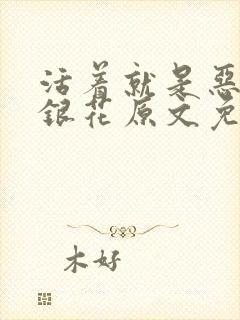 活着就是惡
銀花原文免
木好